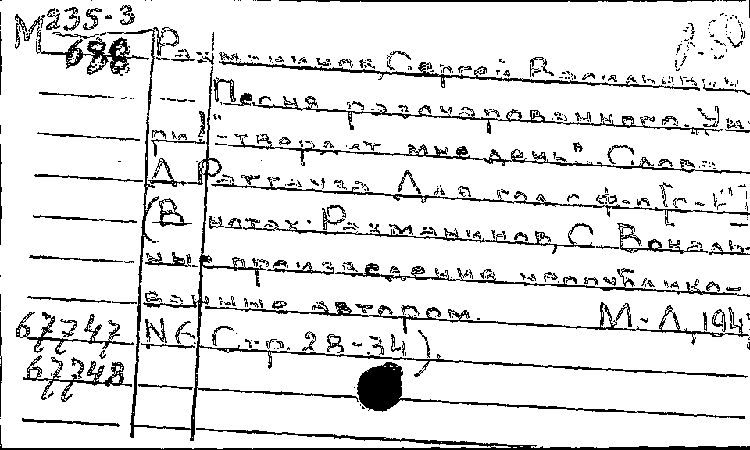 М 235-3 2-50
688 Рахманинов, Сергей Васильевич
Песня разочарованного. „Ум-
ри" - твердят мне день"... Слова
Д. Ратгауза Для гол. с ф-п
(В нотах: Рахманинов, С Вокаль-
ные произведения неопублико-
ванные автором. М-Л, 1947
67747 N6 Стр. 28-34).
67748